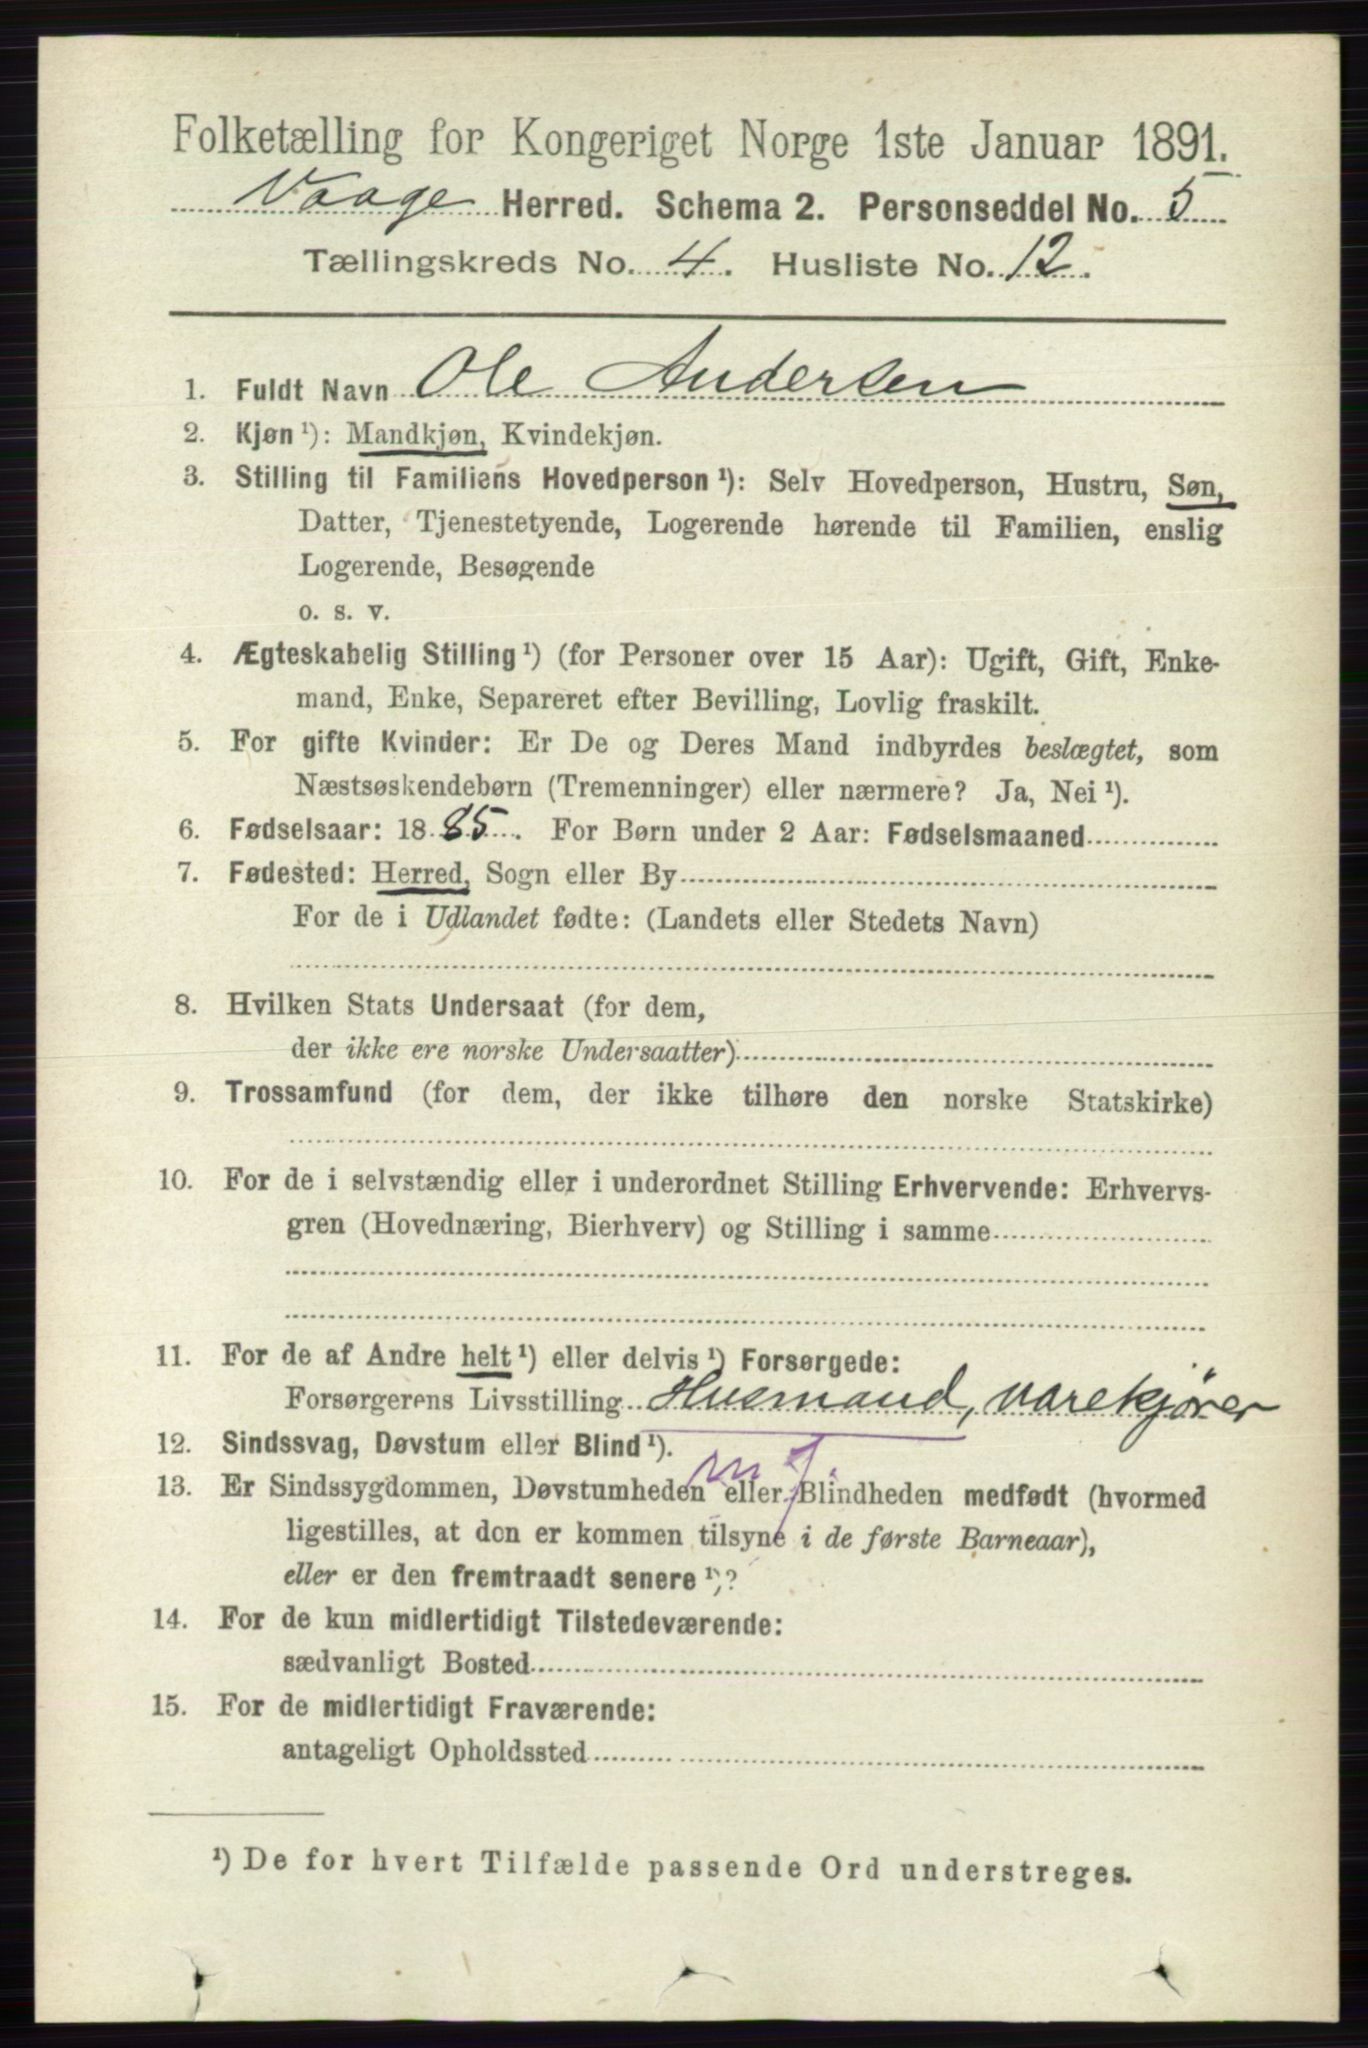 Folketælling for Kongeriget Norge 1ste Januar 1891.
Vaage Herred. Schema 2. Personseddel No. 5
Tællingskreds No. 4. Husliste No. 12.
1. Fuldt Navn Ole Andersen
2. Kjøn ¹): Mandkjøn, Kvindekjøn.
3. Stilling til Familiens Hovedperson ¹): Selv Hovedperson, Hustru, Søn,
Datter, Tjenestetyende, Logerende hørende til Familien, enslig
Logerende, Besøgende
o. s. v.
4. Ægteskabelig Stilling ¹) (for Personer over 15 Aar): Ugift, Gift, Enke-
mand, Enke, Separeret efter Bevilling, Lovlig fraskilt.
5. For gifte Kvinder: Er De og Deres Mand indbyrdes beslægtet, som
Næstsøskendebørn (Tremenninger) eller nærmere? Ja, Nei ¹).
6. Fødselsaar: 1885. For Børn under 2 Aar: Fødselsmaaned
7. Fødested: Herred, Sogn eller By
For de i Udlandet fødte: (Landets eller Stedets Navn)
8. Hvilken Stats Undersaat (for dem,
der ikke ere norske Undersaatter)
9. Trossamfund (for dem, der ikke tilhøre den norske Statskirke)
10. For de i selvstændig eller i underordnet Stilling Erhvervende: Erhvervs-
gren (Hovednæring, Bierhverv) og Stilling i samme
11. For de af Andre helt ¹) eller delvis ¹) Forsørgede:
Forsørgerens Livsstilling Husmand, varekjører
12. Sindssvag, Døvstum eller Blind ¹).
13. Er Sindssygdommen, Døvstumheden eller Blindheden medfødt (hvormed
ligestilles, at den er kommen tilsyne i de første Barneaar),
eller er den fremtraadt senere ¹)?
14. For de kun midlertidigt Tilstedeværende:
sædvanligt Bosted
15. For de midlertidigt Fraværende:
antageligt Opholdssted
¹) De for hvert Tilfælde passende Ord understreges.